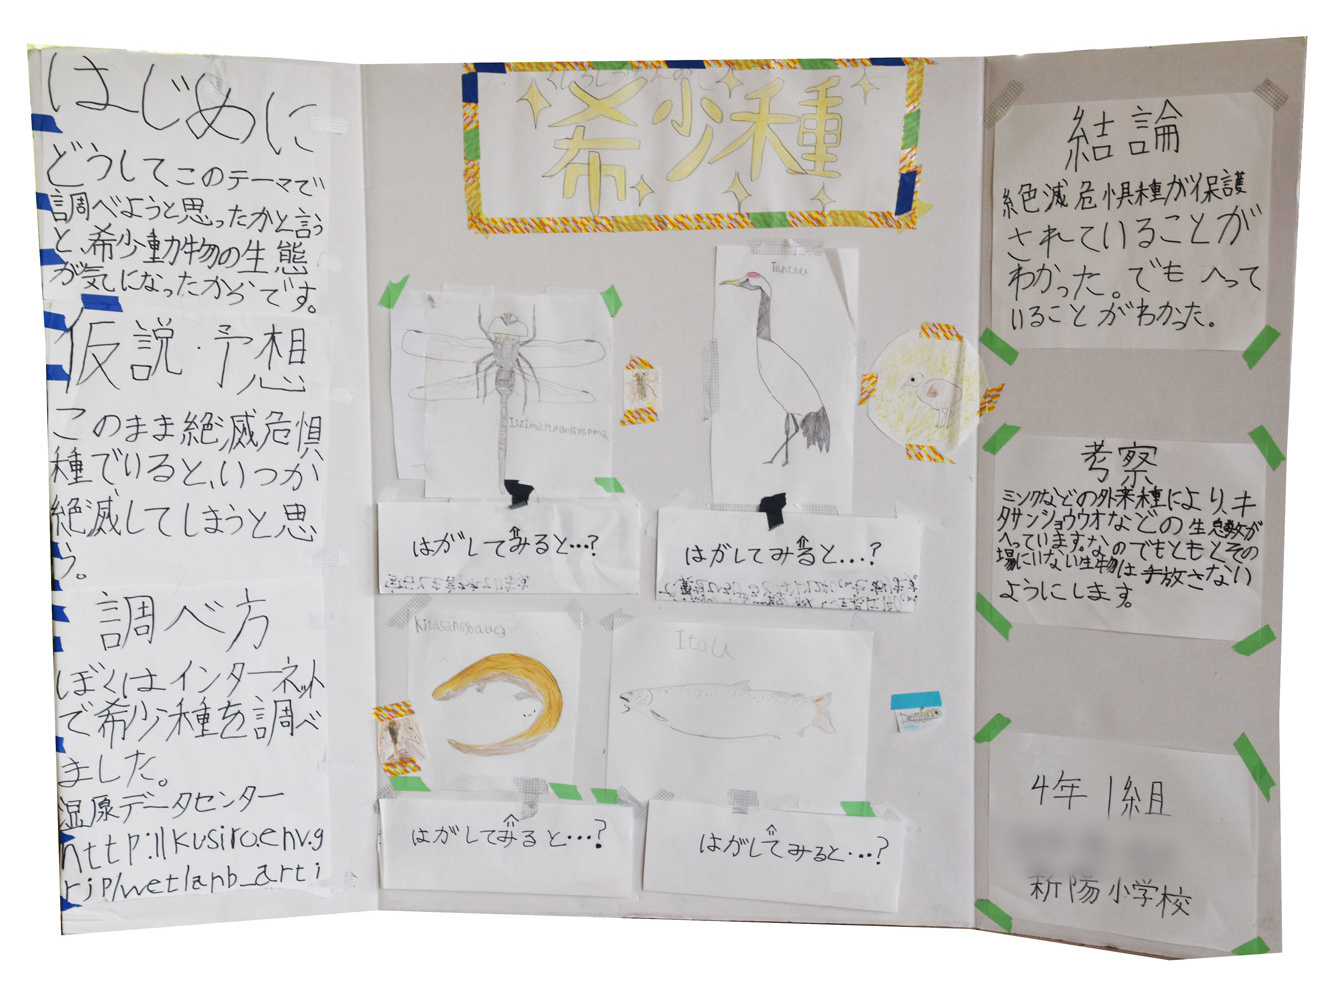 はじめに
どうしてこのテーマで
調べようと思ったかと言う
と、希少動物の生態
が気になったからです。
仮説・予想
このまま絶滅危惧
種でいると、いつか
絶滅してしまうと思
う。
調べ方
ぼくはインターネット
で希少種を調べ
ました。
湿原データセンター
http://kusiro.env.g
rjp/wetlanb_arti
希少種
Tantyu
Kitasansyouuo
Itou
はがしてみると…?
はがしてみると…?
はがしてみると…?
はがしてみると…?
結論
絶滅危惧種が保護
されていることが
わかった。でも へって
いることがわかった。
考察
ミンクなどの外来種により、キ
タサンショウウオなどの生息数が
へっています。なのでもともとその
場にいない生物は手放さない
ようにします。
4年1組
新陽小学校